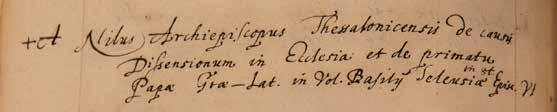 +A Nilus Archiepiscopus Thessalonicensis de causis
Dissensionum in Ecclesia et de primatu
Papæ Græ-Lat. in Vol. Basilij Seleusiæ Episc. VI